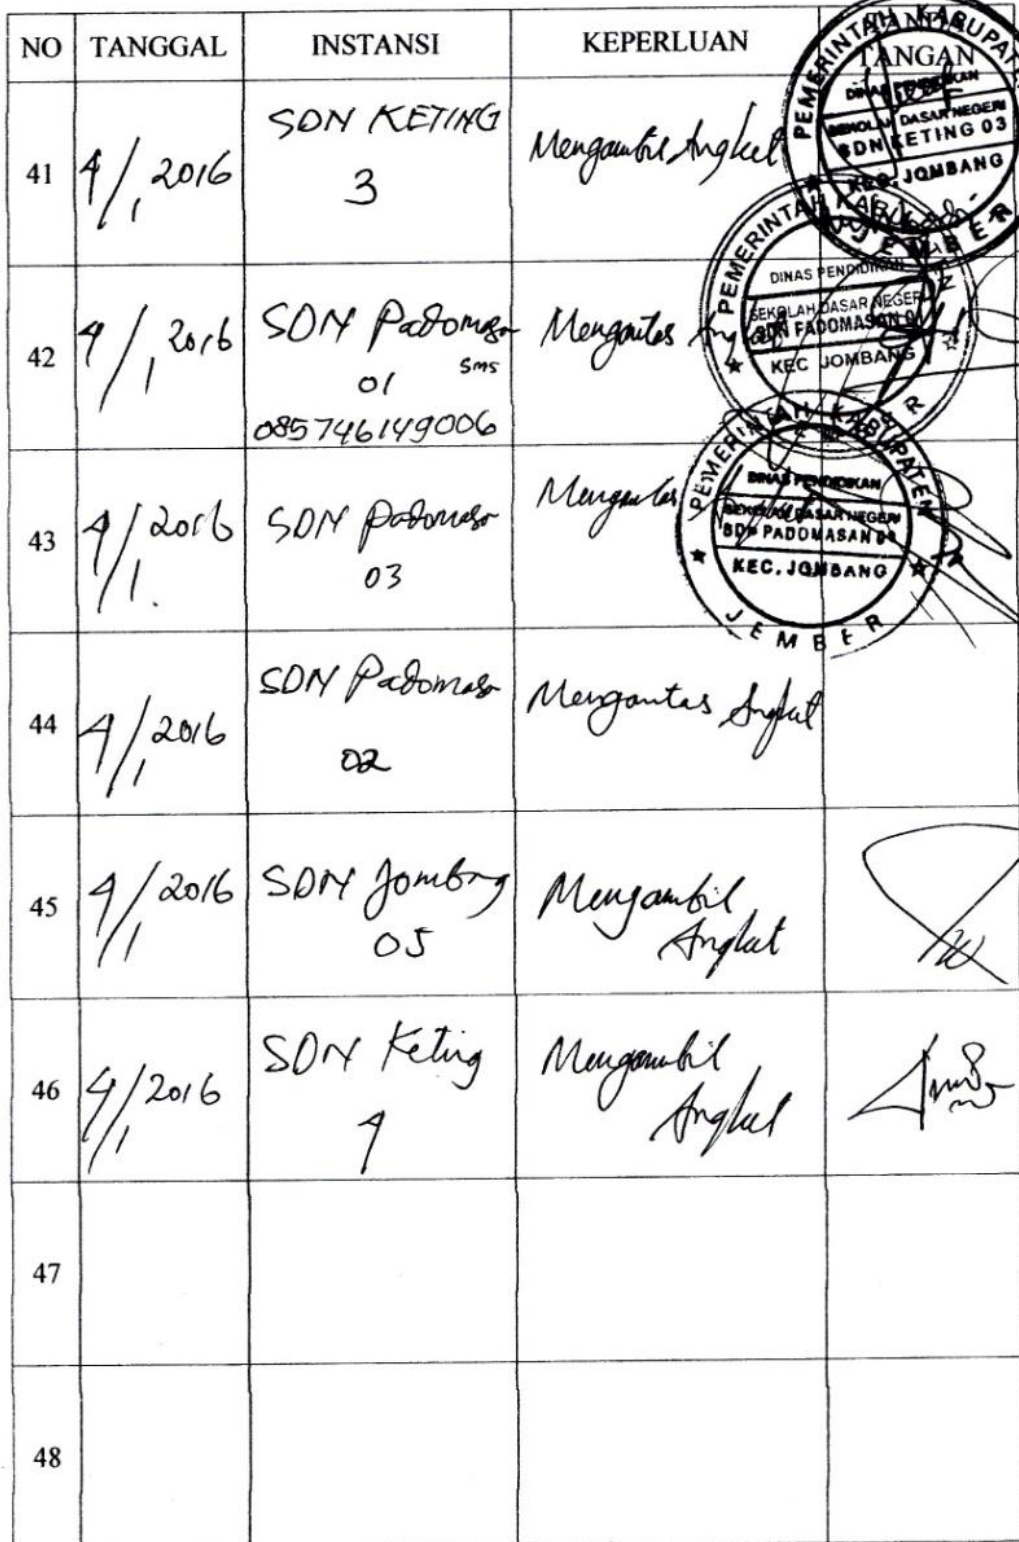 NO TANGGAL INSTANSI KEPERLUAN TANDA TANGAN
41 4/1 2016 SDN KETING 3 Mengambil Angket
PEMERINTAH KABUPATEN
DINAS PENDIDIKAN
SEKOLAH DASAR NEGERI
SDN KETING 03
KEC. JOMBANG
JEMBER
42 4/1 2016 SDN Padomasan 01 Mengantas Angket
sms
085746149006
PEMERINTAH KABUPATEN
DINAS PENDIDIKAN
SEKOLAH DASAR NEGERI
SDN PADOMASAN 01
KEC JOMBANG
43 4/1 2016 SDN Padomasan 03 Mengantas
PEMERINTAH KABUPATEN
DINAS PENDIDIKAN
SEKOLAH DASAR NEGERI
SDN PADOMASAN
KEC. JOMBANG
JEMBER
44 4/1 2016 SDN Padomasan 02 Mengantas Angket
45 4/1 2016 SDN Jombang 05 Mengambil Angket
46 4/1 2016 SDN Keting 4 Mengambil Angket
47
48